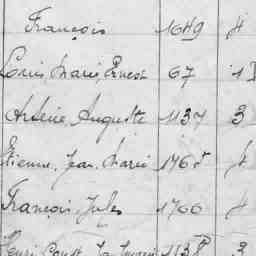 François 1649 4
Louis, Marie, Ernest 67 1
Arsène, Auguste 1137 3
Etienne, Jean, Marie 1765 4
François, Jules 1766 4
Henri 1138 3